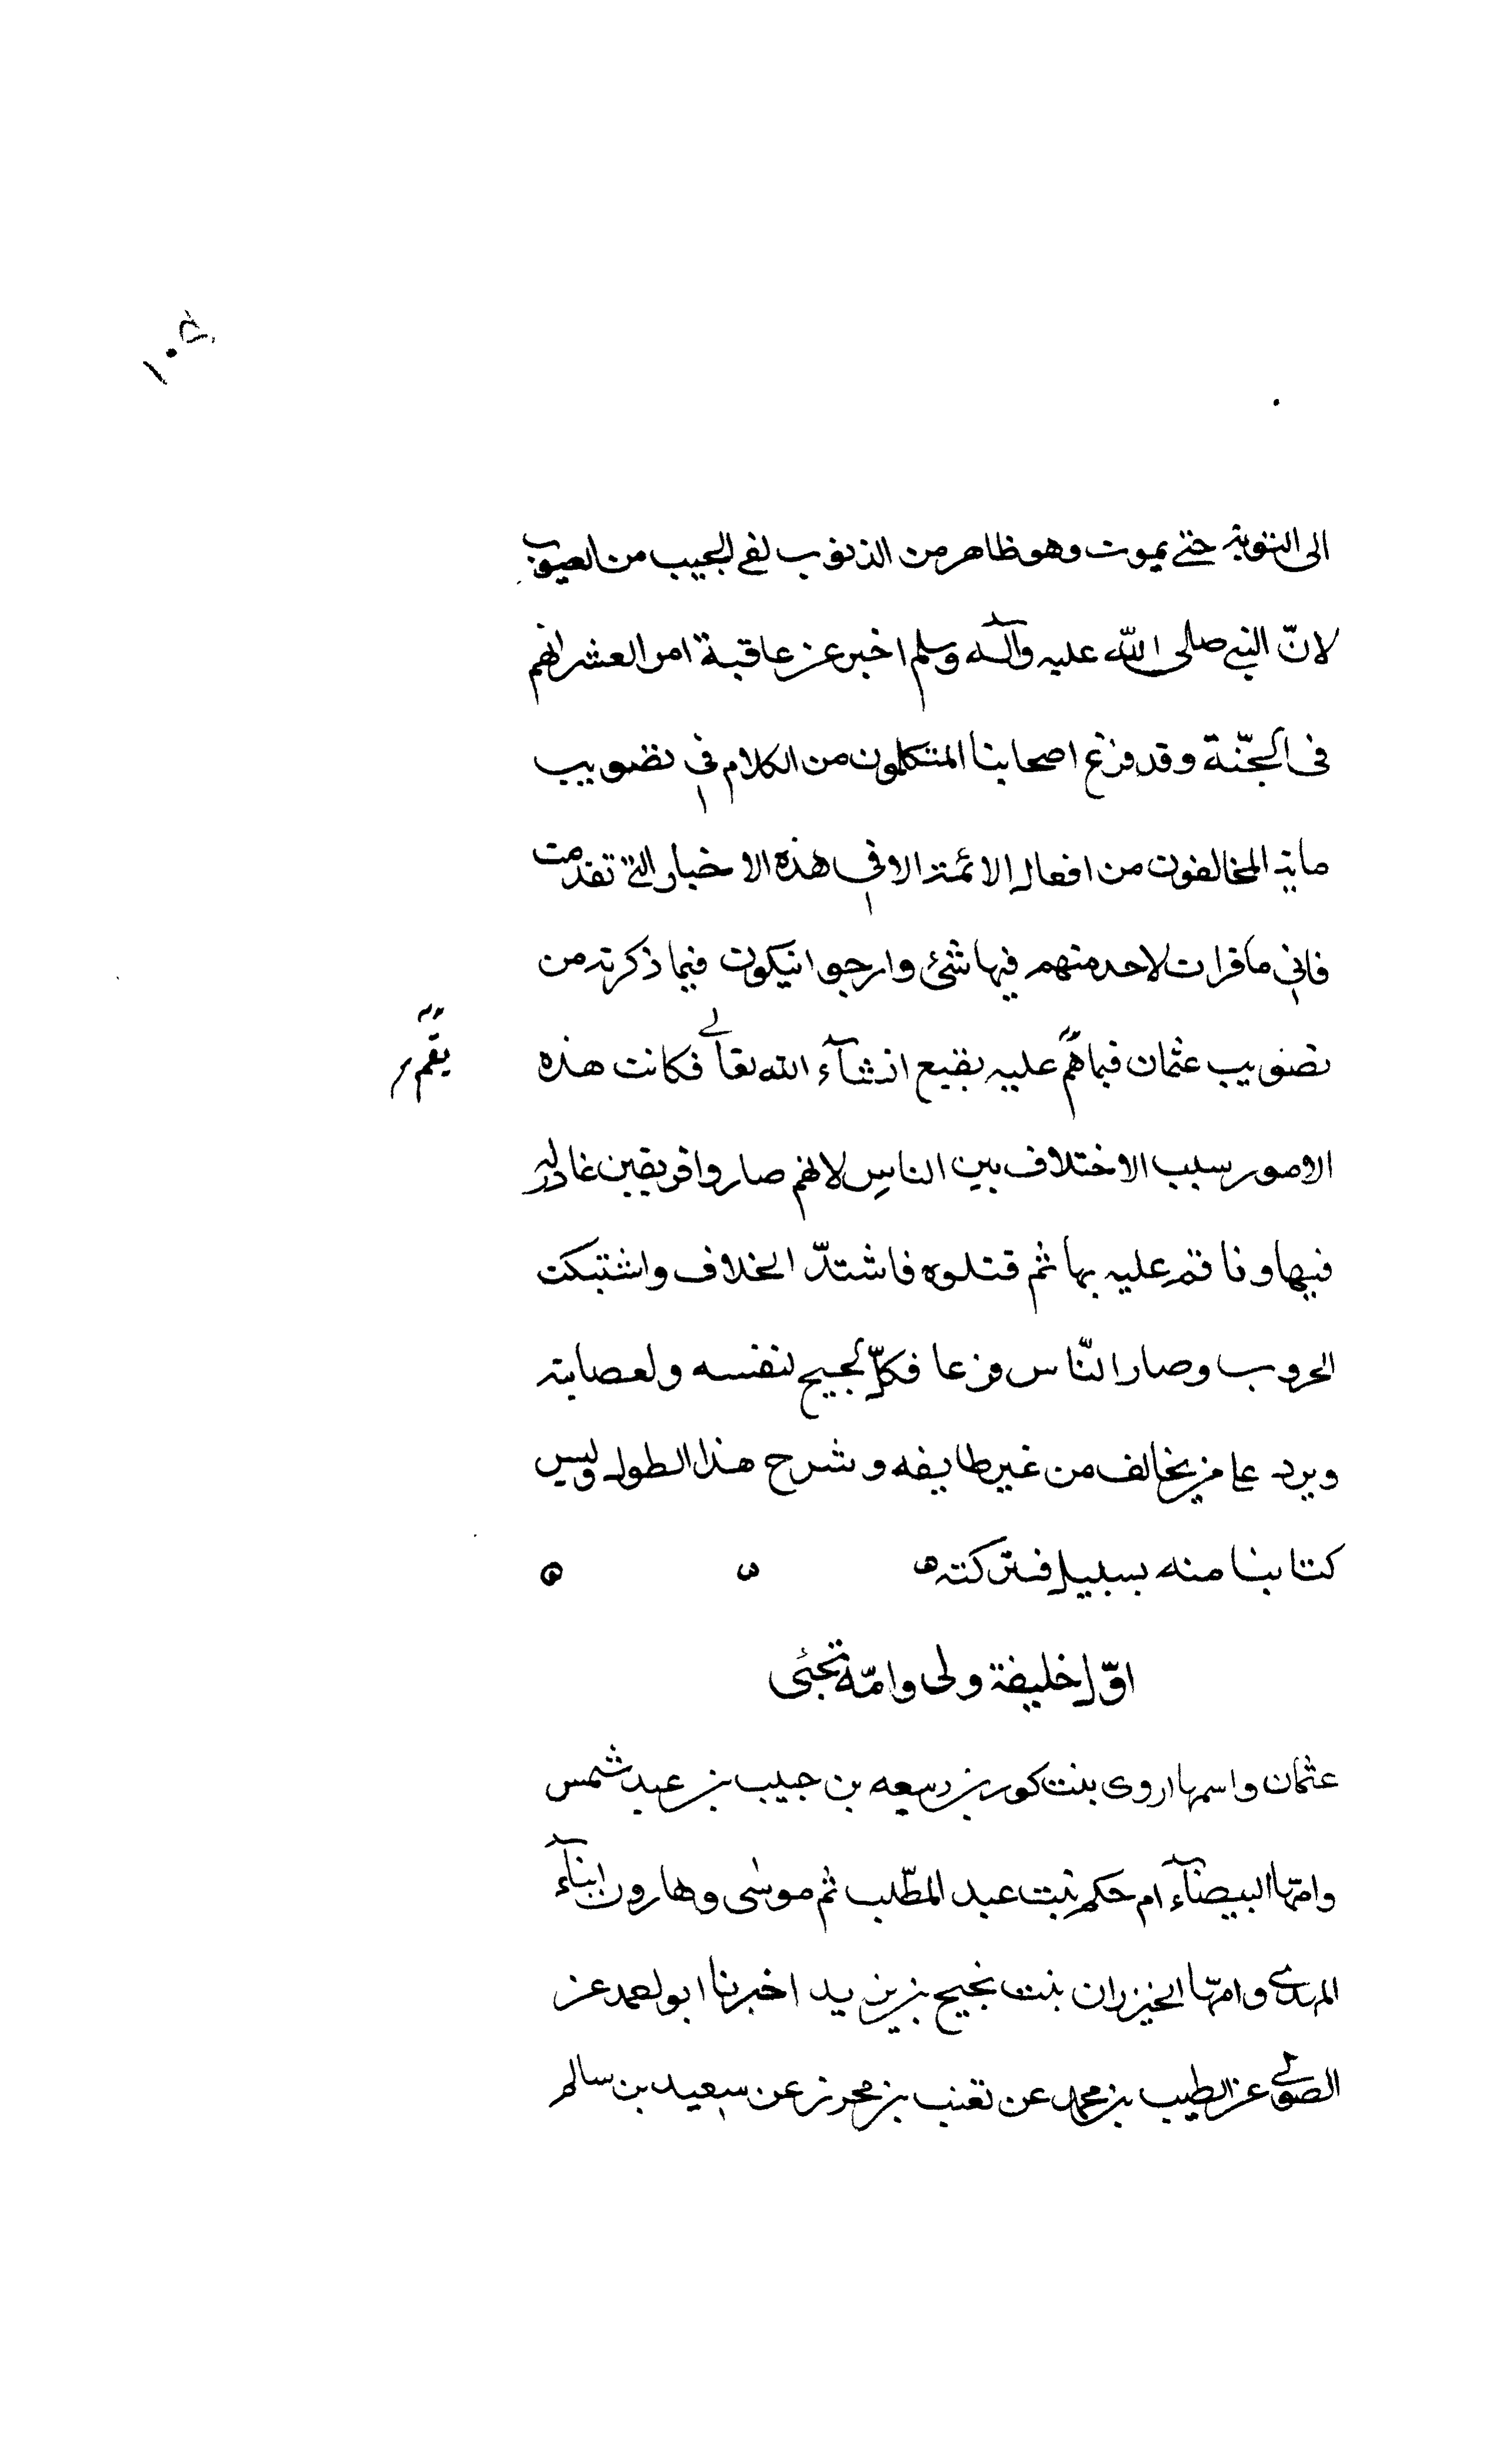 ١٠٥
الى التوبة حتى يموت وهو ظاهر من الذنوب نقى الجيب من العيوب
لانّ النبى صلى اللّه عليه وآله وسلم اخبر عن عاقبة امر العشر انهم
فى الجنّة وقد فرغ اصحابنا المتكلمون من الكلام فى تضويب
ما المخالفون من افعال الائمة الا فى هذه الاخبار التى تقدمت
فانى ما قرات لاحد منهم فيها شئ وارجوا انيكون فيما ذكرته من
تضويب عثمان فيما همّ عليه بقيع انشآء الله تعالى فكانت هذه
يقمّ
الامور سبب الاختلاف بين الناس لانهم صاروا فريقين عاذر له
فيها وناقم عليه بها ثم قتلوه فاشتدّ الخلاف واشتبكت
الحروب وصار النّاس فزعا فكلّ يحيج لنفسه ولعصابته
ويرد على من يخالف من غير طايفه وشرح هذا الطول وليس
كتابنا منه بسبيل فتركته ه ه ه
اوّل خليفة ولى وامّه تجئى
عثمان واسمها اروى بنت كور بن رسعه بن حبيب بن عبد شمس
وامّها البيضآء ام حكم بنت عبد المطّلب ثم موسٰى وهارون ابنآء
المهدى وامّها الخيزران بنت نجيح بن يزيد اخبرنا ابو احمد عن
الصولى عن الطيب بن محمد عن تعنب بن محرز عن سعيد بن سالم